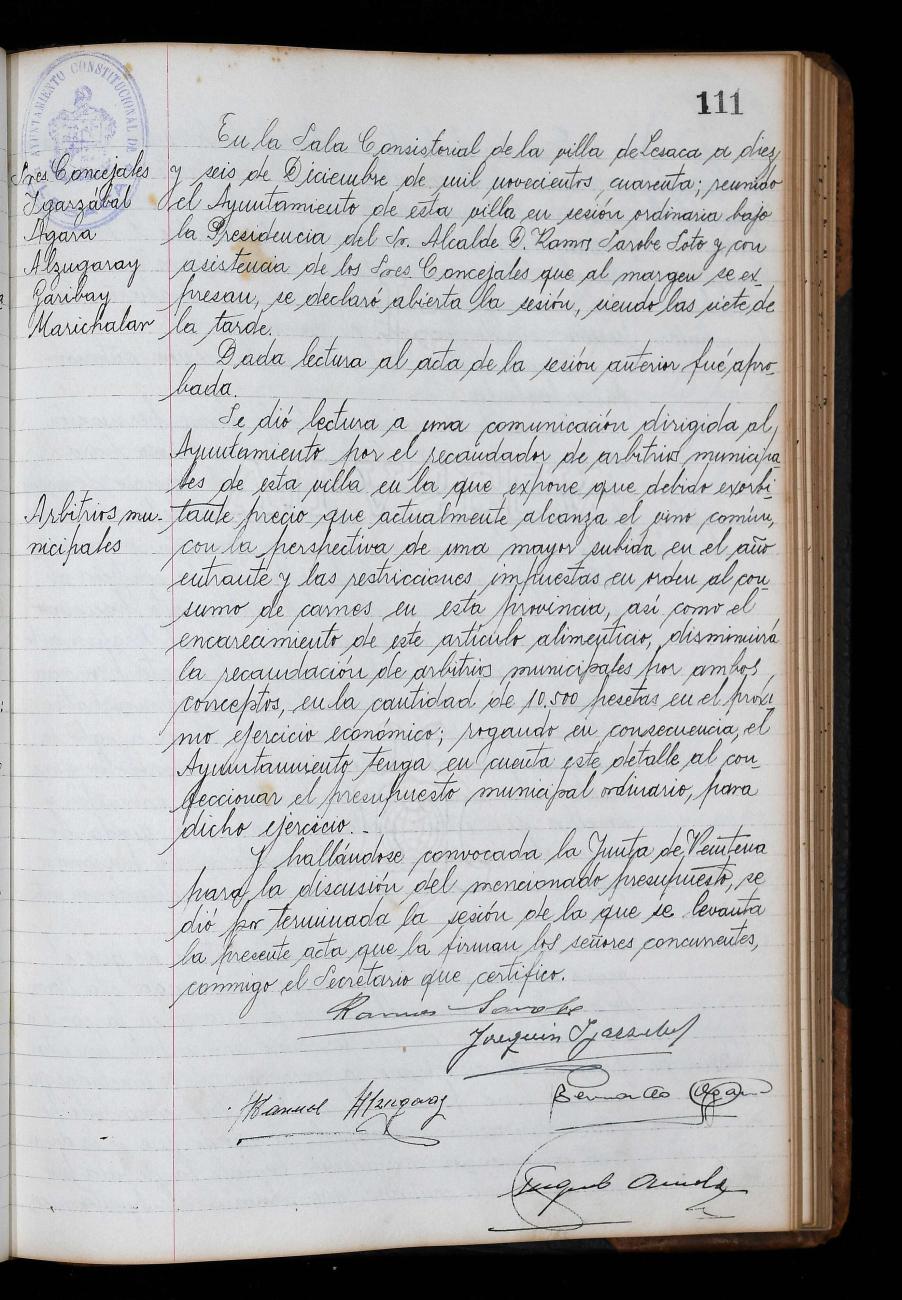 111
AYUNTAMIENTO CONSTITUCIONAL DE
Sres Concejales
Igarzábal
Agara
Alzugaray
Garibay
Marichalar
En la Sala Consistorial de la villa de Lesaca a diez
y seis de Diciembre de mil novecientos cuarenta; reunido
el Ayuntamiento de esta villa en sesión ordinaria bajo
la Presidencia del Sr. Alcalde D. Ramos Sarobe Soto y con
asistencia de los Sres Concejales que al margen se ex-
presan, se declaró abierta la sesión, siendo las siete de
la tarde.
Dada lectura al acta de la sesión anterior fué apro-
bada.
Arbitrios mu-
nicipales
Se dió lectura a una comunicación dirigida al
Ayuntamiento por el recaudador de arbitrios municipa
les de esta villa en la que expone que debido exorbi-
tante precio que actualmente alcanza el vino común,
con la perspectiva de una mayor subida en el año
entrante y las restricciones impuestas en orden al con-
sumo de carnes en esta provincia, así como el
encarecimiento de este artículo alimenticio, disminuirá
la recaudación de arbitrios municipales por ambos
conceptos, en la cantidad de 10.500 pesetas en el proxi-
mo ejercicio económico; rogando en consecuencia, el
Ayuntanmiento tenga en cuenta este detalle al con-
feccionar el presupuesto municipal ordinario, para
dicho ejercicio. -
Y hallándose convocada la Junta de Veintena
para la discusión del mencionado presupuesto, se
dió por terminada la sesión de la que se levanta
la presente acta que la firman los señores concurrentes,
conmigo el Secretario que certifico.
Ramos Sarobe
Joaquin Igarzabal
Manuel Alzugaray
Bernardo